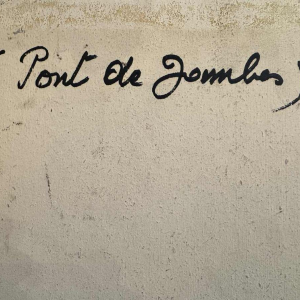 ( Pont de Jambes )